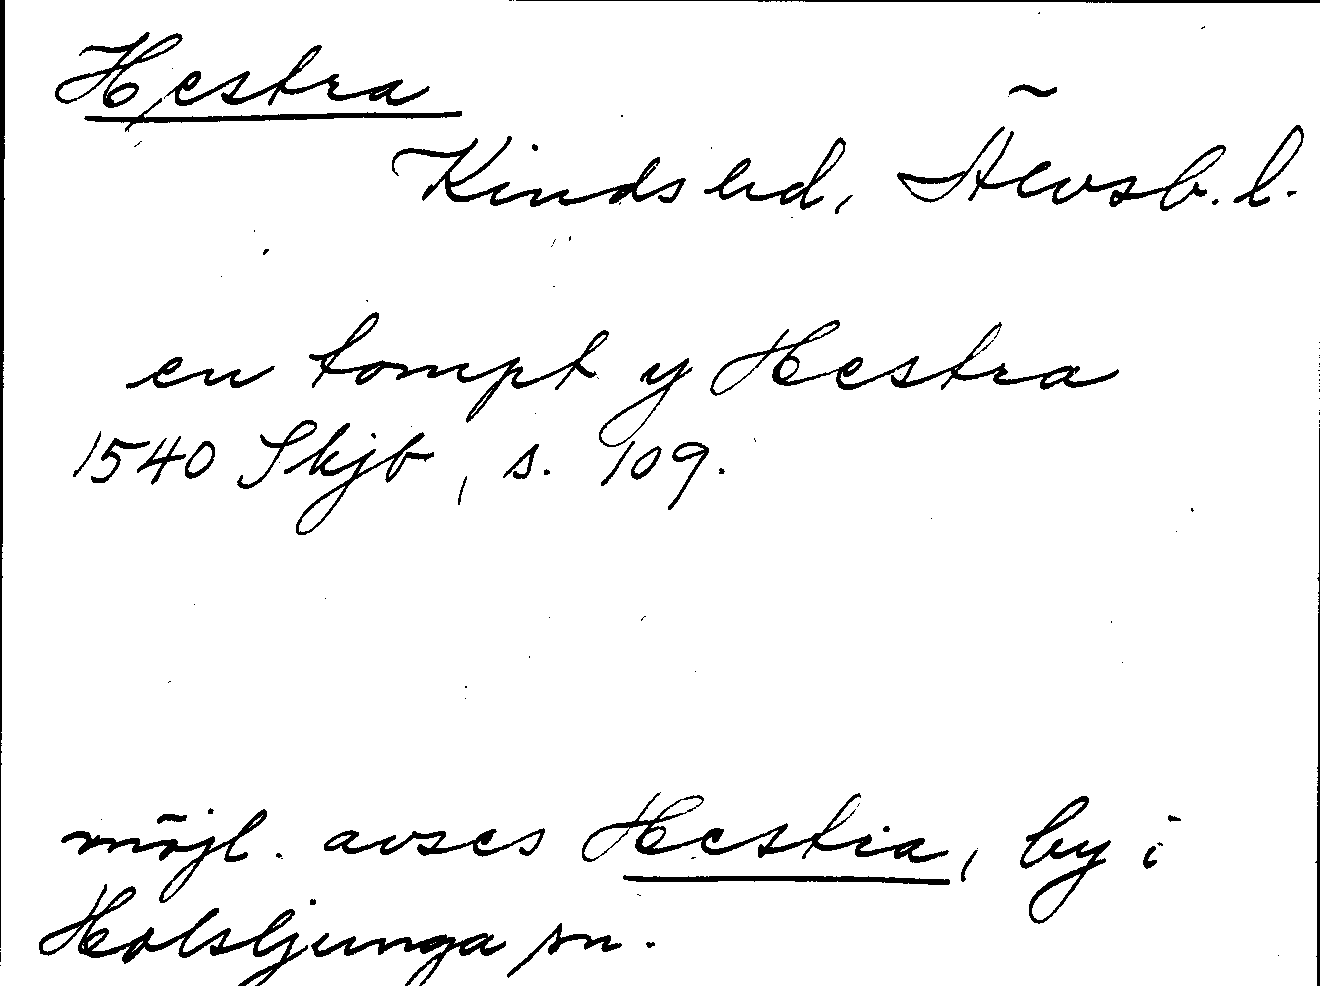 Hestra
Kinds hd, Älvsb. l.
en tompt y Hestra
1540 Skjb, s. 109.
möjl. avses Hestra, by i
Holsljunga sn.